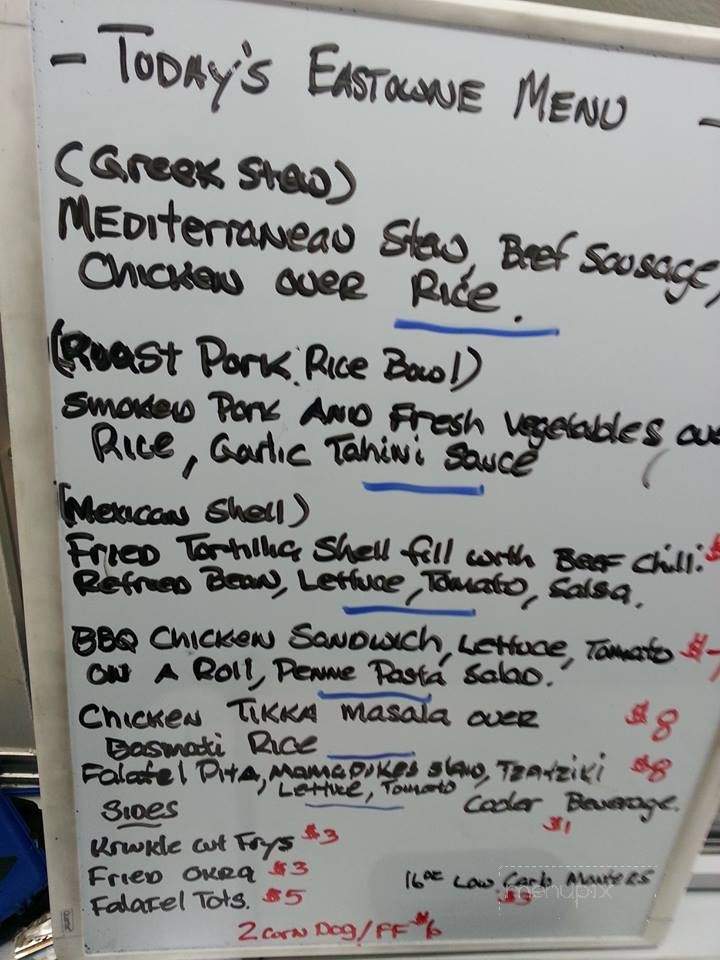 - TODAY'S EASTOWNE MENU -
(Greek Stew)
MEDiterraNeaN Stew, Beef Sausage,
Chicken over Rice.
(Roast Pork Rice Bowl)
Smoked Pork AND Fresh vegetables
Rice, Garlic Tahini Sauce
(Mexican Shell)
Fried Tortilla Shell fill with Beef Chili
Refried Bean, Lettuce, Tomato, Salsa.
BBQ Chicken Sandwich, Lettuce, Tomato
on A Roll, Penne Pasta Salad.
Chicken Tikka Masala over $8
Basmati Rice
Falafel Pita, MamaDukes Slaw, Tzatziki $8
Lettuce, Tomato
Sides
Cooler Beverage.
$1
Krinkle cut Frys $3
Fried Okra $3
16oz Low Carb Monters
$3
Falafel Tots. $5
2 Corn Dog/FF $6
menupix